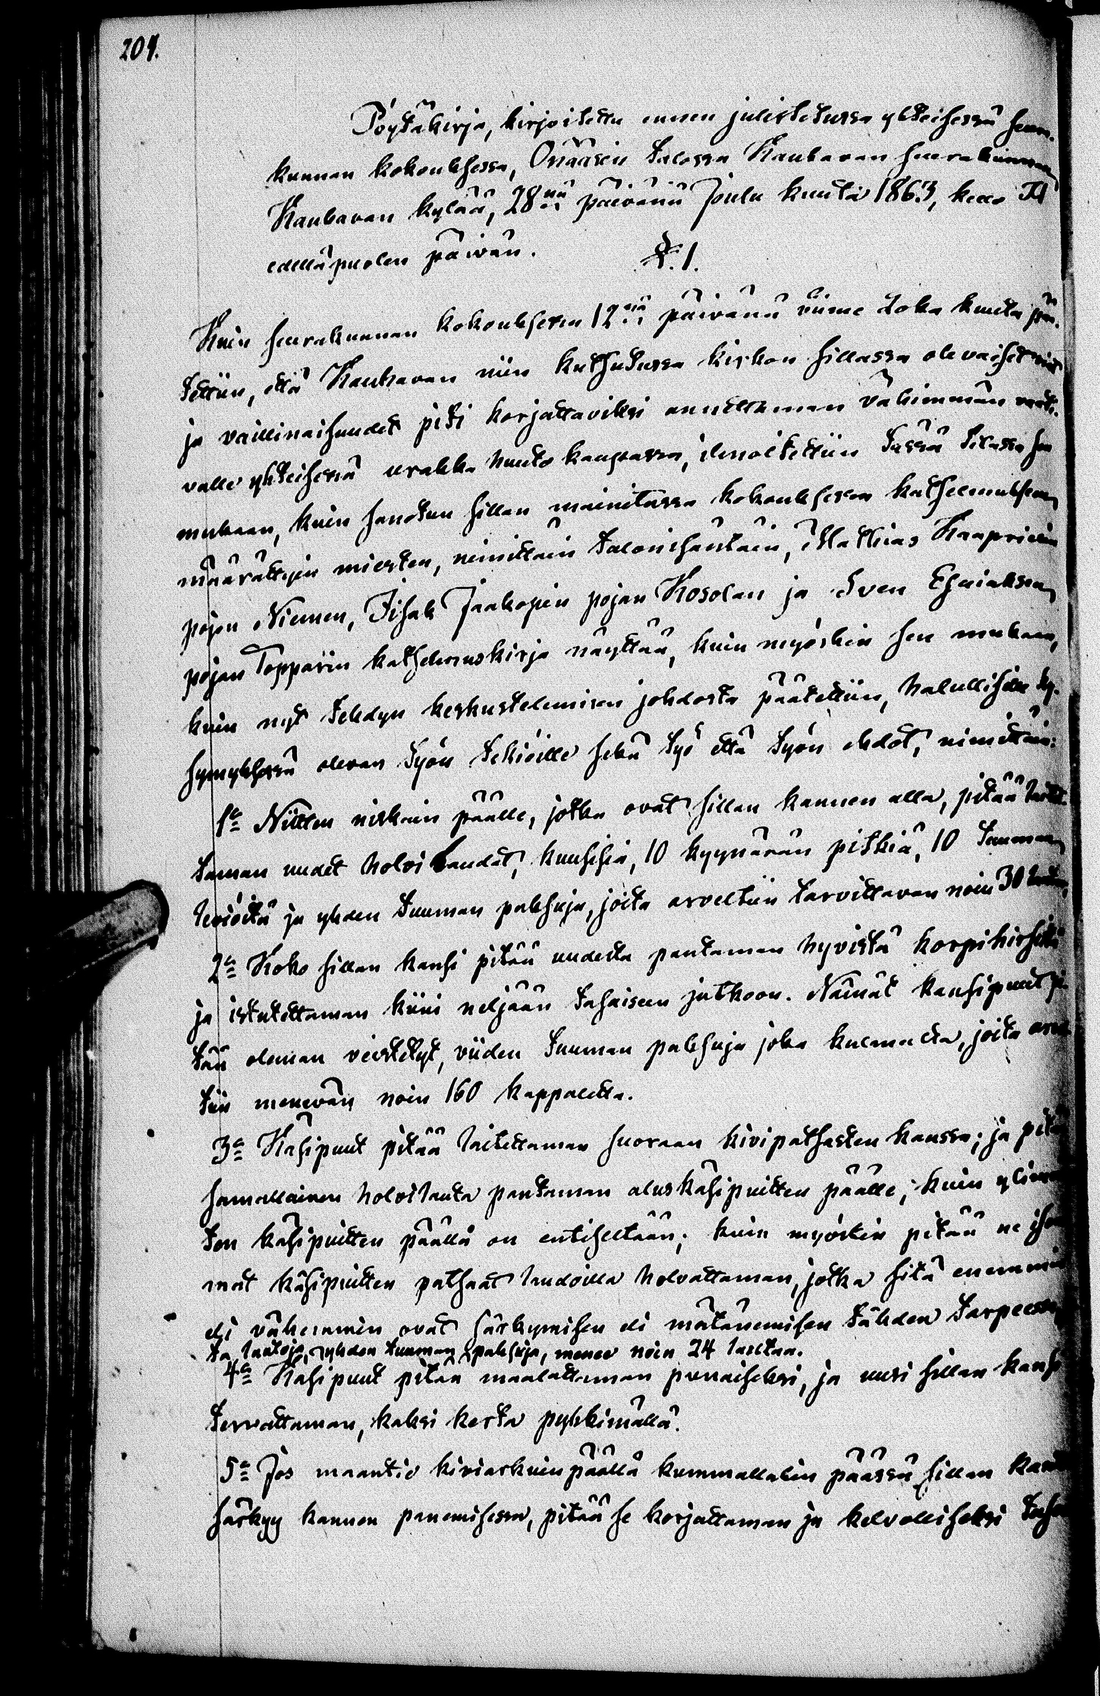 204.
Pöytäkirja, kirjoitettu ennen julistetussa yhteisessä seura-
kunnan kokouksessa, Knaasin talossa Kauhavan seurakunnan
Kauhavan kylää, 28nä päivänä Joulu kuuta 1863, kello 11
edellä puolen päivän.
§. 1.
Kuin seurakunnan kokouksessa 12nä päivänä viime Loka kuuta pää-
tettiin, että Kauhavan niin kutsutussa kirkon sillassa olevaiset viat
ja vaillinaisuudet piti korjattaviksi annettaman vähimmän vaati-
valle yhteisessä urakka huuto kaupassa, ilmoitettiin tässä tilassa sen
mukaan, kuin sanotun sillan mainitussa kokouksessa katselmukseen
määrättyin miesten, nimittäin talonisäntäin, Mathias Kaaprielin
pojan Niemen, Iisak Jaakopin pojan Kosolan ja Sven Esaiaksen
pojan Topparin katselmuskirja näyttää, kuin myöskin sen mukaan,
kuin nyt tehdyn keskustelemisen johdosta päätettiin, halullisille ky-
symyksessä olevan työn tekiöille sekä työ että työn ehdot, nimittäin:
1o Niitten niskain päälle, jotka ovat sillan kannen alla, pitää laitet-
taman uudet holvilaudat, kuusisia, 10 kyynärän pitkiä, 10 tuuman
leviöitä ja yhden tuuman paksuja, joita arveltiin tarvittavan noin 30
2o Koko sillan kansi pitää uudesta pantaman hyvistä korpihirsistä
ja istutettaman kiini neljään tasaiseen jatkoon. Nämät kansipuut pi-
tää oleman veistetyt, viiden tuuman paksuja joka kulmalta, joita arvel-
tiin menevän noin 160 kappaletta.
3o Käsipuut pitää laitettaman suoraan kivipatsasten kanssa; ja pitää
samallainen holvilauta pantaman aluskäsipuitten päälle, kuin ylim-
ten käsipuitten päällä on entiseltään; kuin myöskin pitää ne
mat käsipuitten patsaat laudoilla holvattaman, jotka sitä enemmin
eli vähemmin ovat särkymisen eli mätänemisen tähden tarpeessa,
ta lautoja, yhden tuuman paksuja, menee noin 24 lautaa.
4o Käsipuut pitää maalattaman punaiseksi, ja uusi sillan kansi
tervattaman, kaksi kerta pyhkimällä.
5o Jos maantie kiviarkuin päällä kummallakin päässä sillan
särkyy kannen panemisessa, pitää se korjattaman ja kelvolliseksi